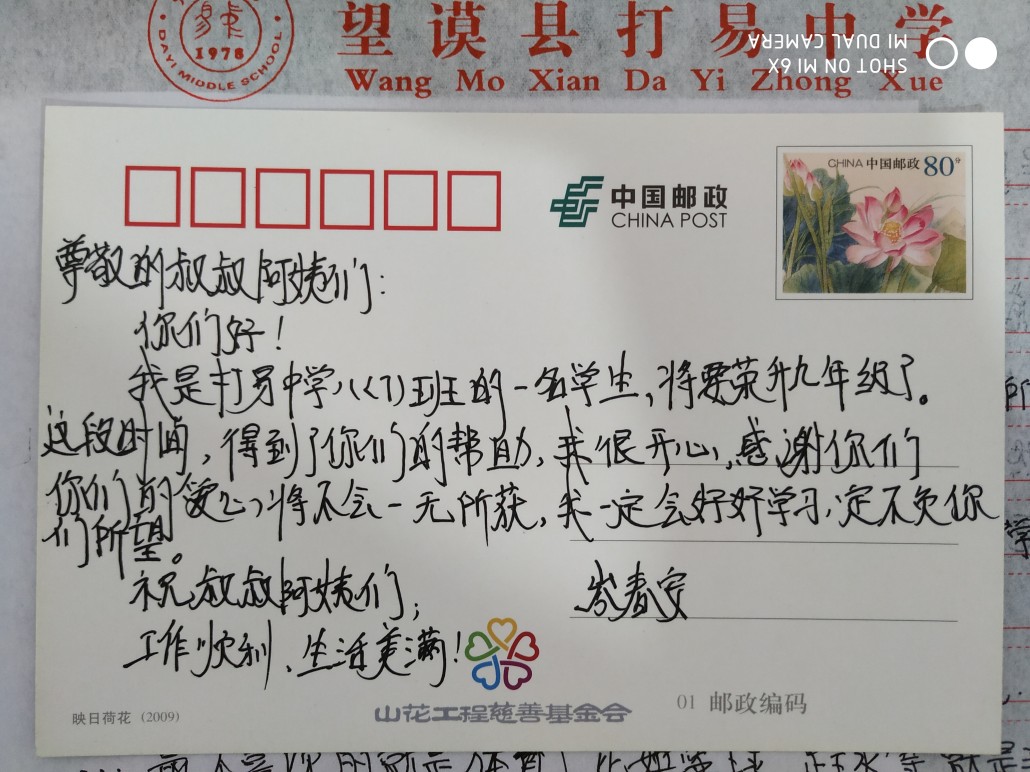 易
1978
DAYI MIDDLE SCHOOL
望谟县打易中学
Wang Mo Xian Da Yi Zhong Xue
SHOT ON MI 6X
MI DUAL CAMERA
中国邮政
CHINA POST
CHINA 中国邮政 80分
尊敬的叔叔阿姨们:
你们好!
我是打易中学八(7)班的一名学生,将要荣升九年级了。
这段时间,得到了你们的帮助,我很开心,感谢你们
你们的爱心将不会一无所获,我一定会好好学习,定不负你
们所望。
祝叔叔阿姨们;
岑春
工作顺利、生活美满!
映日荷花 (2009)
山花工程慈善基金会
01 邮政编码